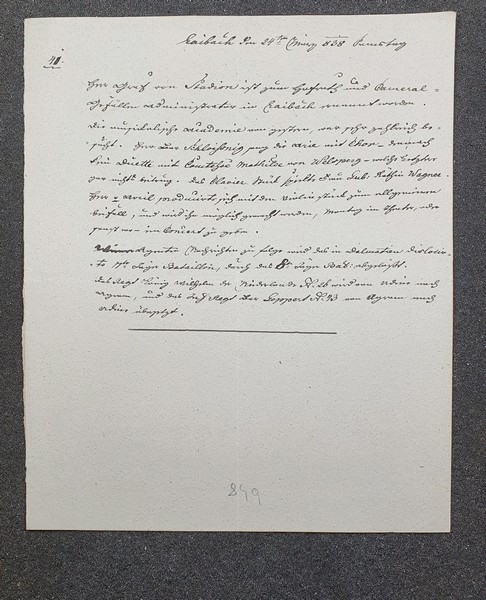 Laibach den 24ten März 838 Samstag
40.
Herr Graf von Stadion ist zum Hofrath und Cameral-
Gefällen Administrator in Laibach ernannt worden.
Die musikalische Academie von gestern, war sehr zahlreich be-
sucht. Herr sang die Arie mit Chor, dann
ein Duette mit Comtesse Mathilde von Welsperg - welch letztere
gar nichts Das Clavier Stück spielte Frau Gub: Räthin Wagner.
Herr produzirte sich mit dem Violin Stück zum allgemeinen
Beifall, und wird ihm möglich gemacht werden, Montag im Theater, oder
sonst wo - ein Concert zu geben.
Nachrichten zu Folge wird das in Dalmatien dislozir-
te Jäger Bataillon, durch das 8te Jäger Bat: abgelöst.
Das Regt König Wilhelm der Niederlande No. 26 wird von Udine nach
Agram, und das Inf. Regt von Agram nach
Udine übersetzt.
849